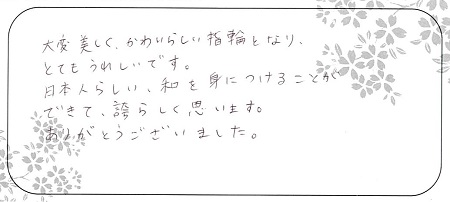 大変美しく、かわいらしい指輪となり、
とてもうれしいです。
日本人らしい、和を身につけることが
できて、誇らしく思います。
ありがとうございました。